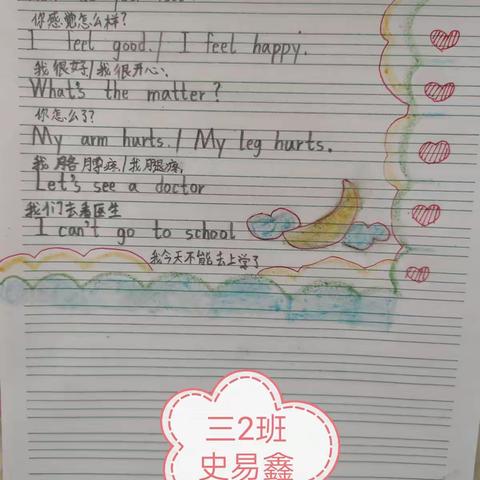 你感觉怎么样?
I feel good./ I feel happy.
我很好/我很开心、
What's the matter?
你怎么了?
My arm hurts. / My leg hurts.
我胳膊疼/我腿疼
Let's see a doctor
我们去看医生
I can't go to school
我今天不能去上学了
三2班
史易鑫